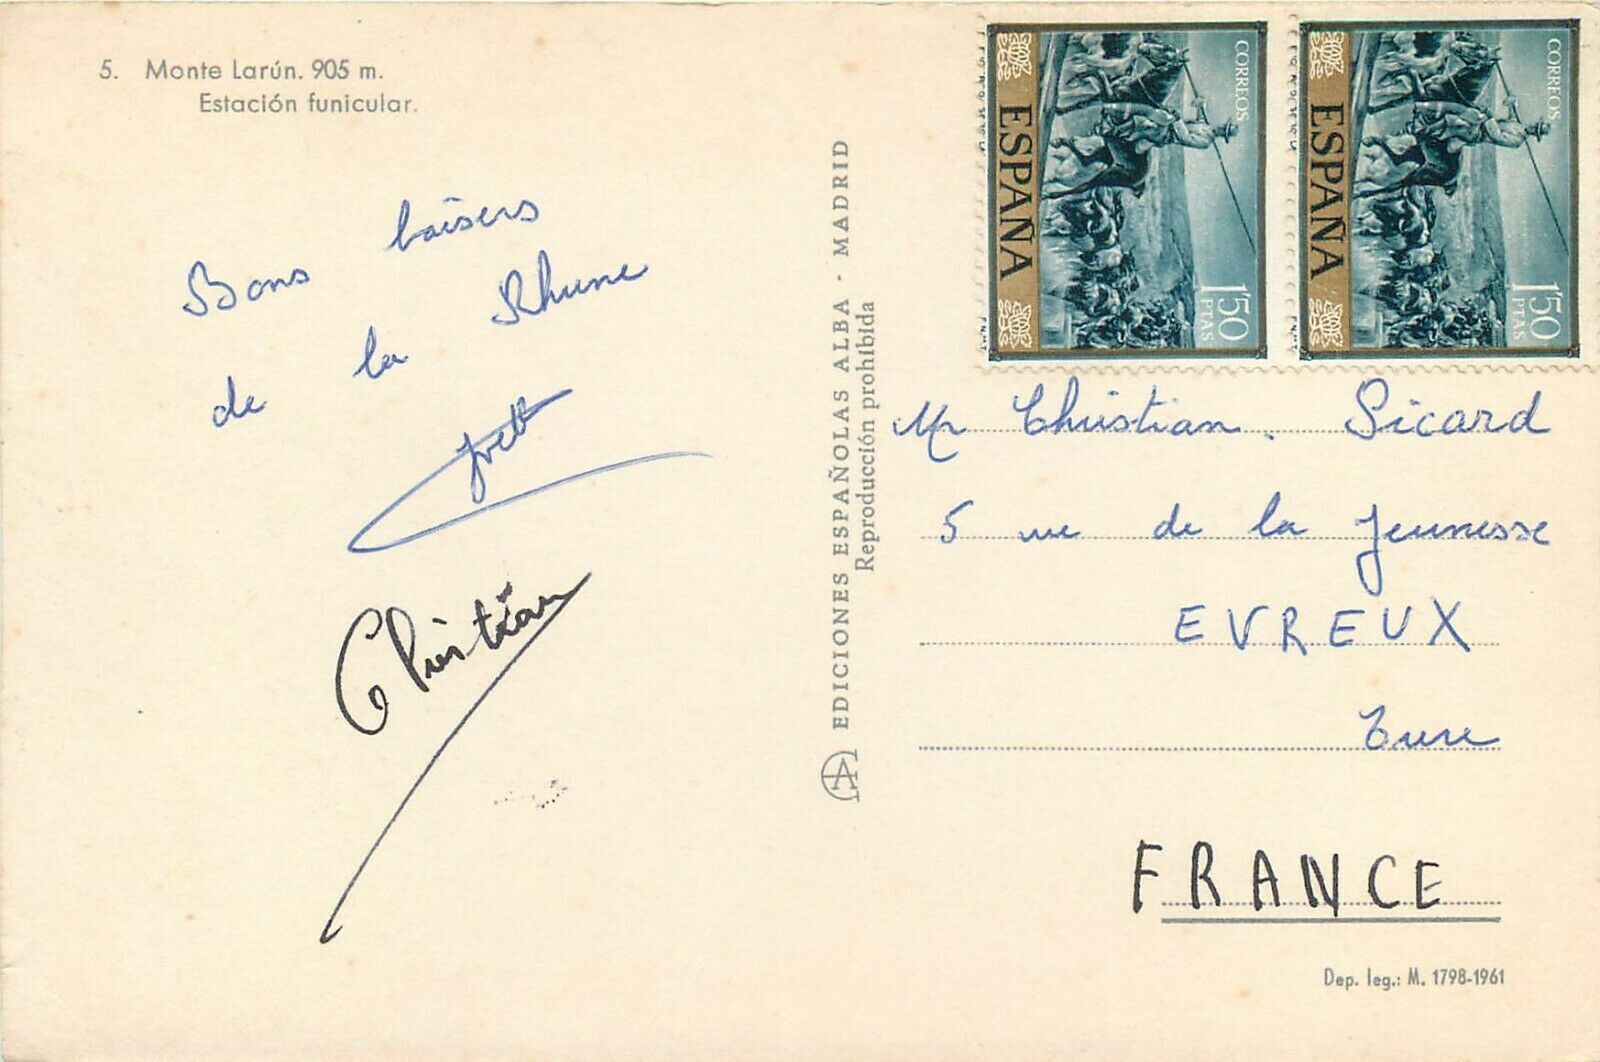 5. Monte Larún. 905 m.
Estación funicular.
Bons baisers
de la Rhune
Christian
EDICIONES ESPAÑOLAS ALBA - MADRID
Reproducción prohibida
CORREOS
ESPAÑA
1'50
PTAS
F.N.M.T.
CORREOS
ESPAÑA
1'50
PTAS
Mr Christian Sicard
5 rue de la Jeunesse
EVREUX
Eure
FRANCE
Dep. leg.: M. 1798-1961